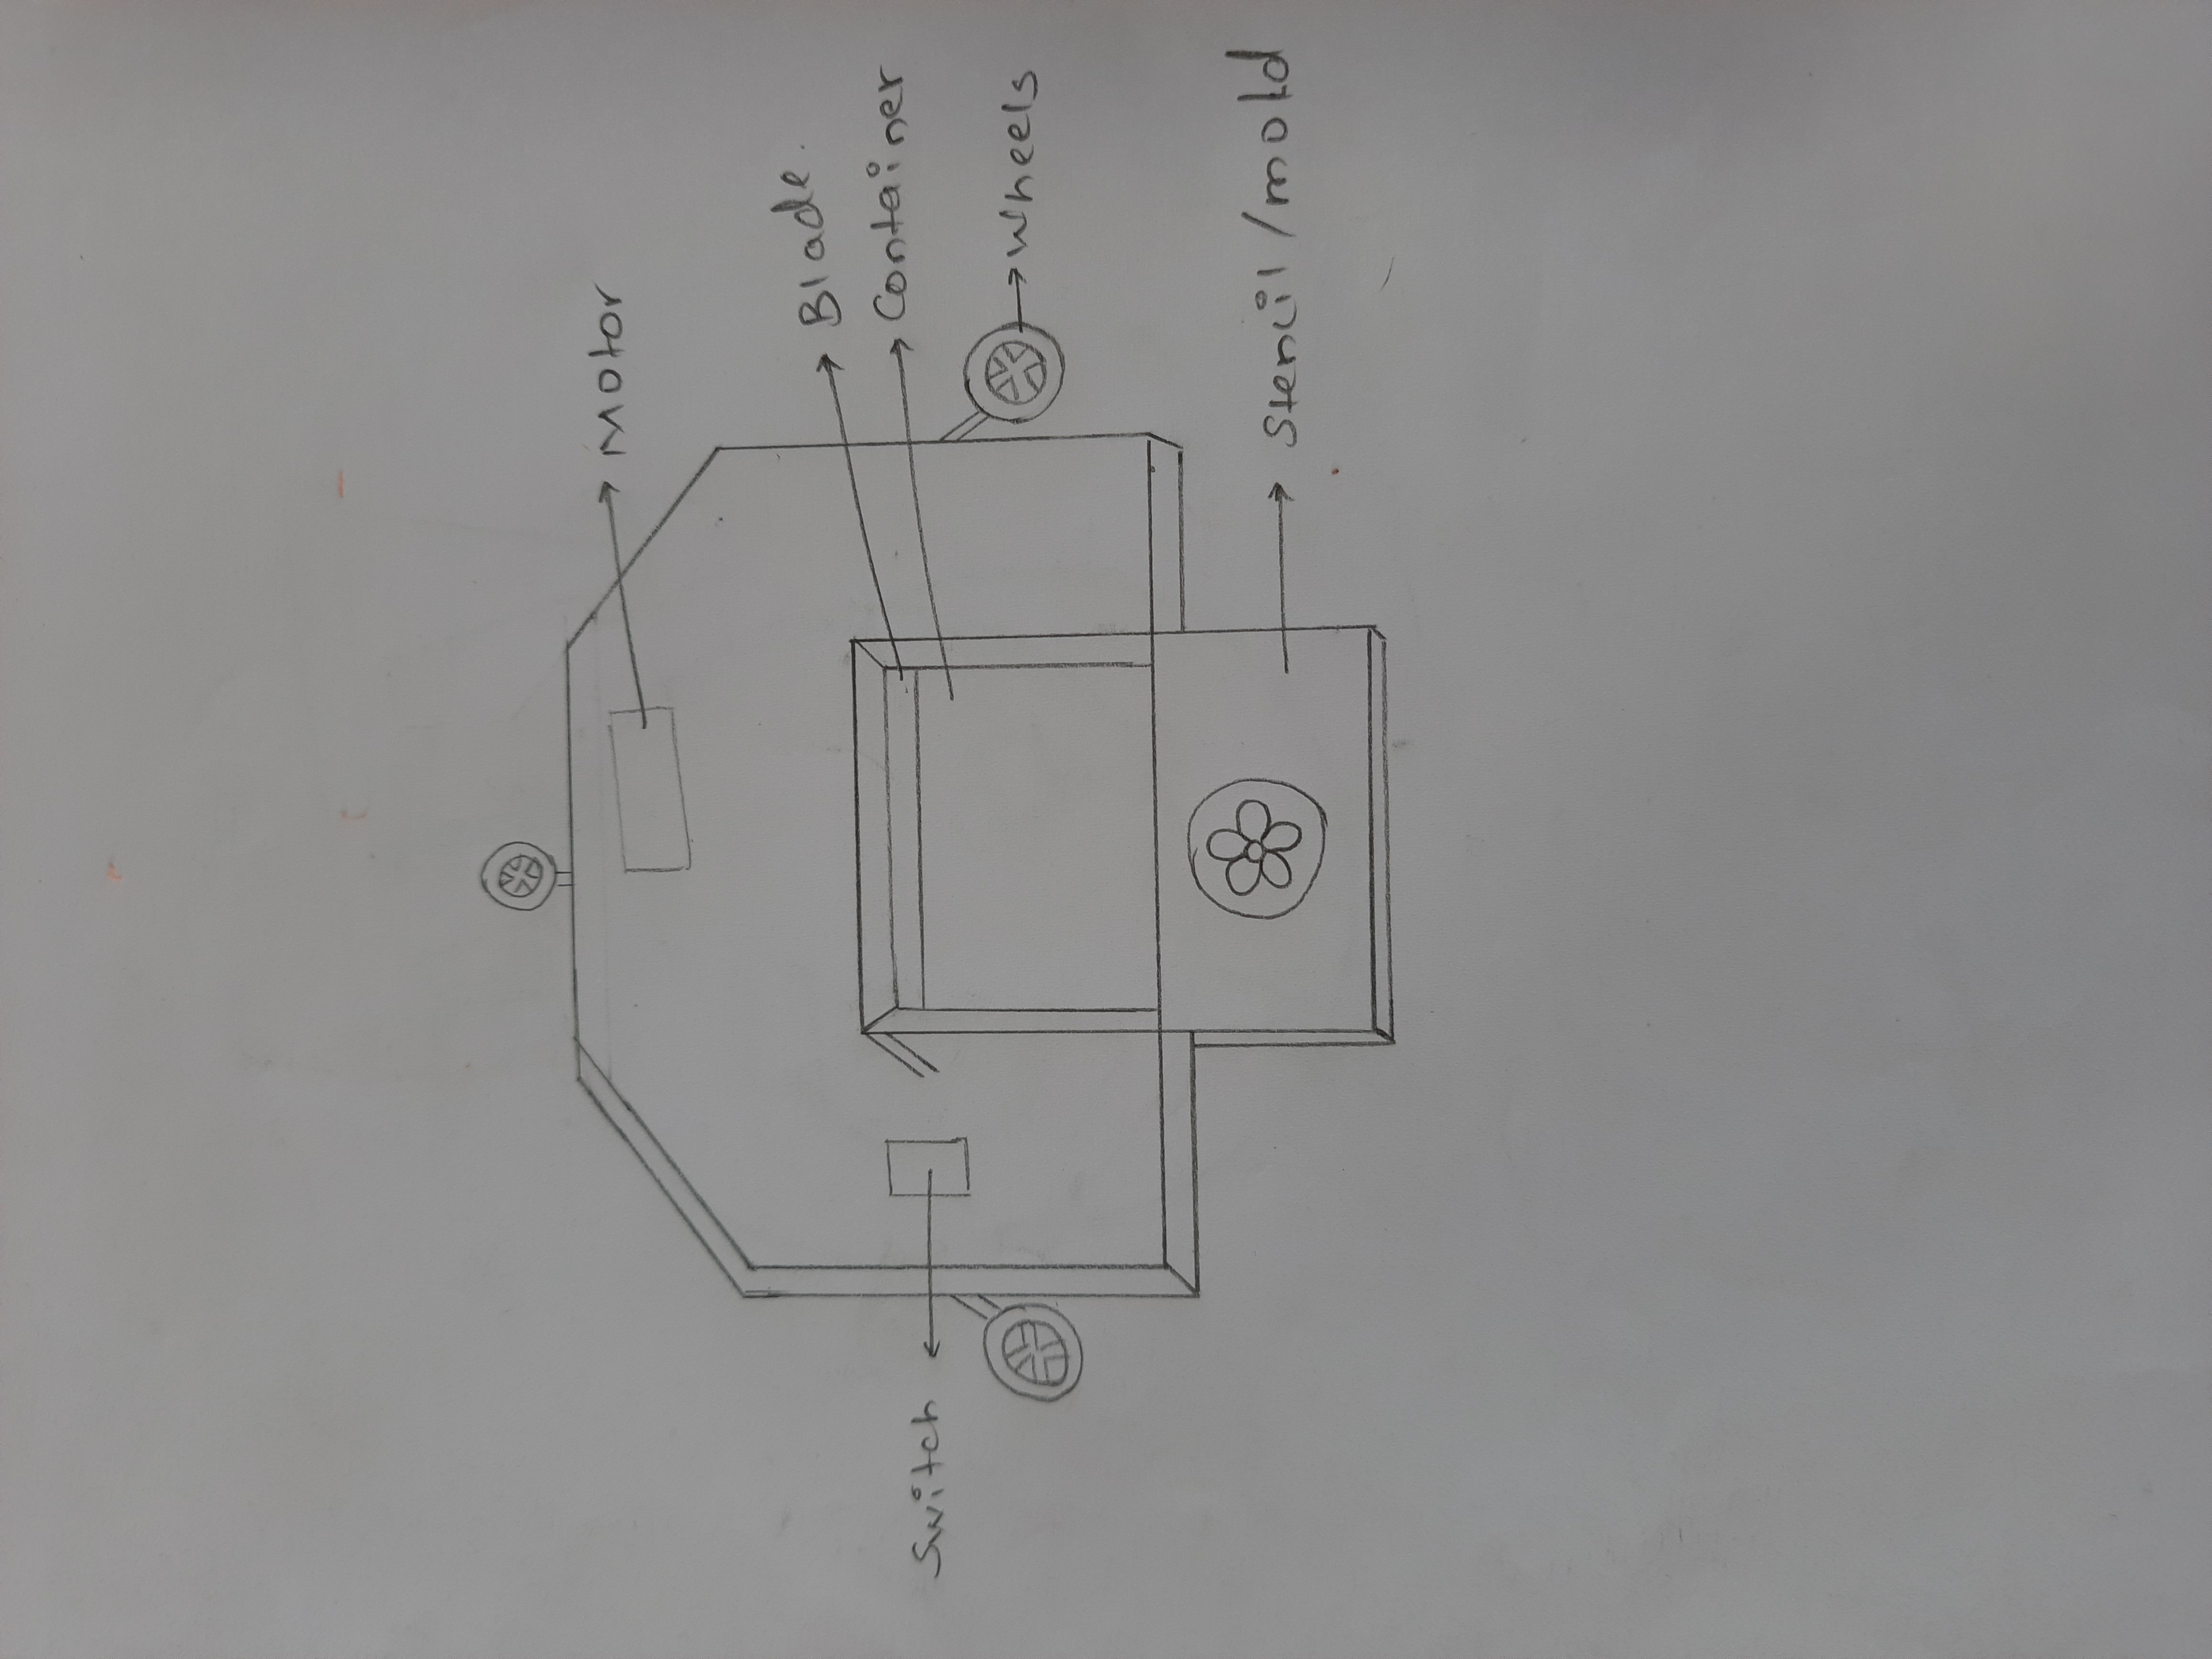 Motor
Blade.
Container
Switch
Wheels
Stencil/mold